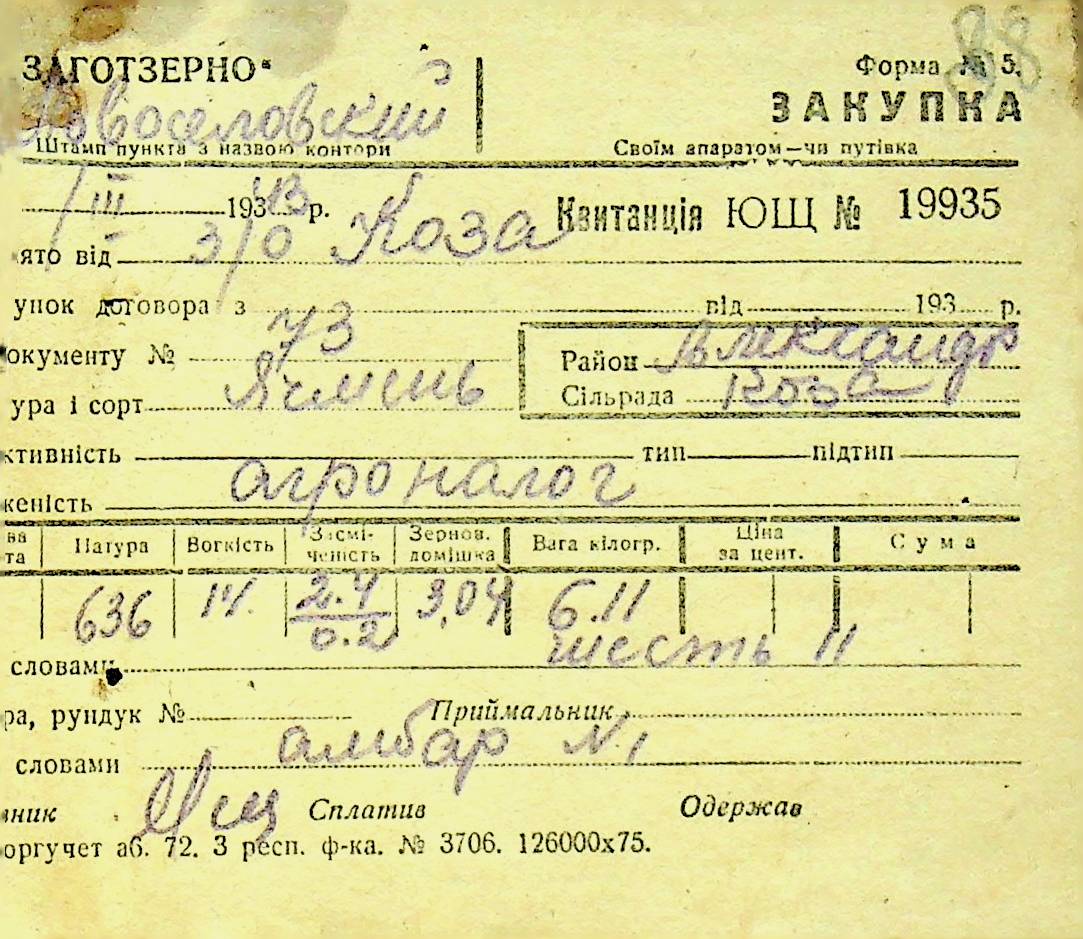 ЗАГОТЗЕРНО"
88
Форма № 5.
Новоселовский
ЗАКУПКА
Штамп пункта з назвою контори
Своїм апаратом—чи путівка
1/III 193 43 р.
Квитанція ЮЩ № 19935
ято від з/о Коза
унок договора з від 193 р.
окументу № 43
Район
ура і сорт Ячмень
Сільрада Коза
ктивність тип підтип
женість агроналог
ва та Натура Вогкість Засмі-ченість Зернов. домішка Вага кілогр. Ціна за цент. Сума
636 14. 2.4 0.2 3,04 6.11
словами шесть 11
ра, рундук № Приймальник
амбар №1
словами
вник Сплатив Одержав
оргучет аб. 72. З респ. ф-ка. № 3706. 126000х75.